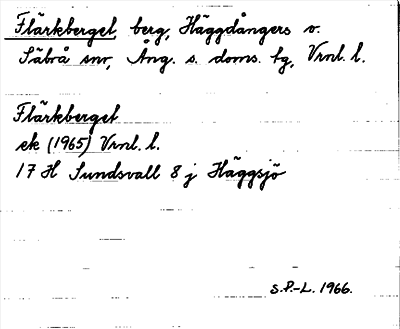 Flärkberget, berg, Häggdångers s.
Säbrå snr, Ång. s. doms. tg, Vrnl. l.
Flärkberget
ek (1965) Vrnl. l.
17 H Sundsvall 8 j Häggsjö
S.P.-L. 1966.